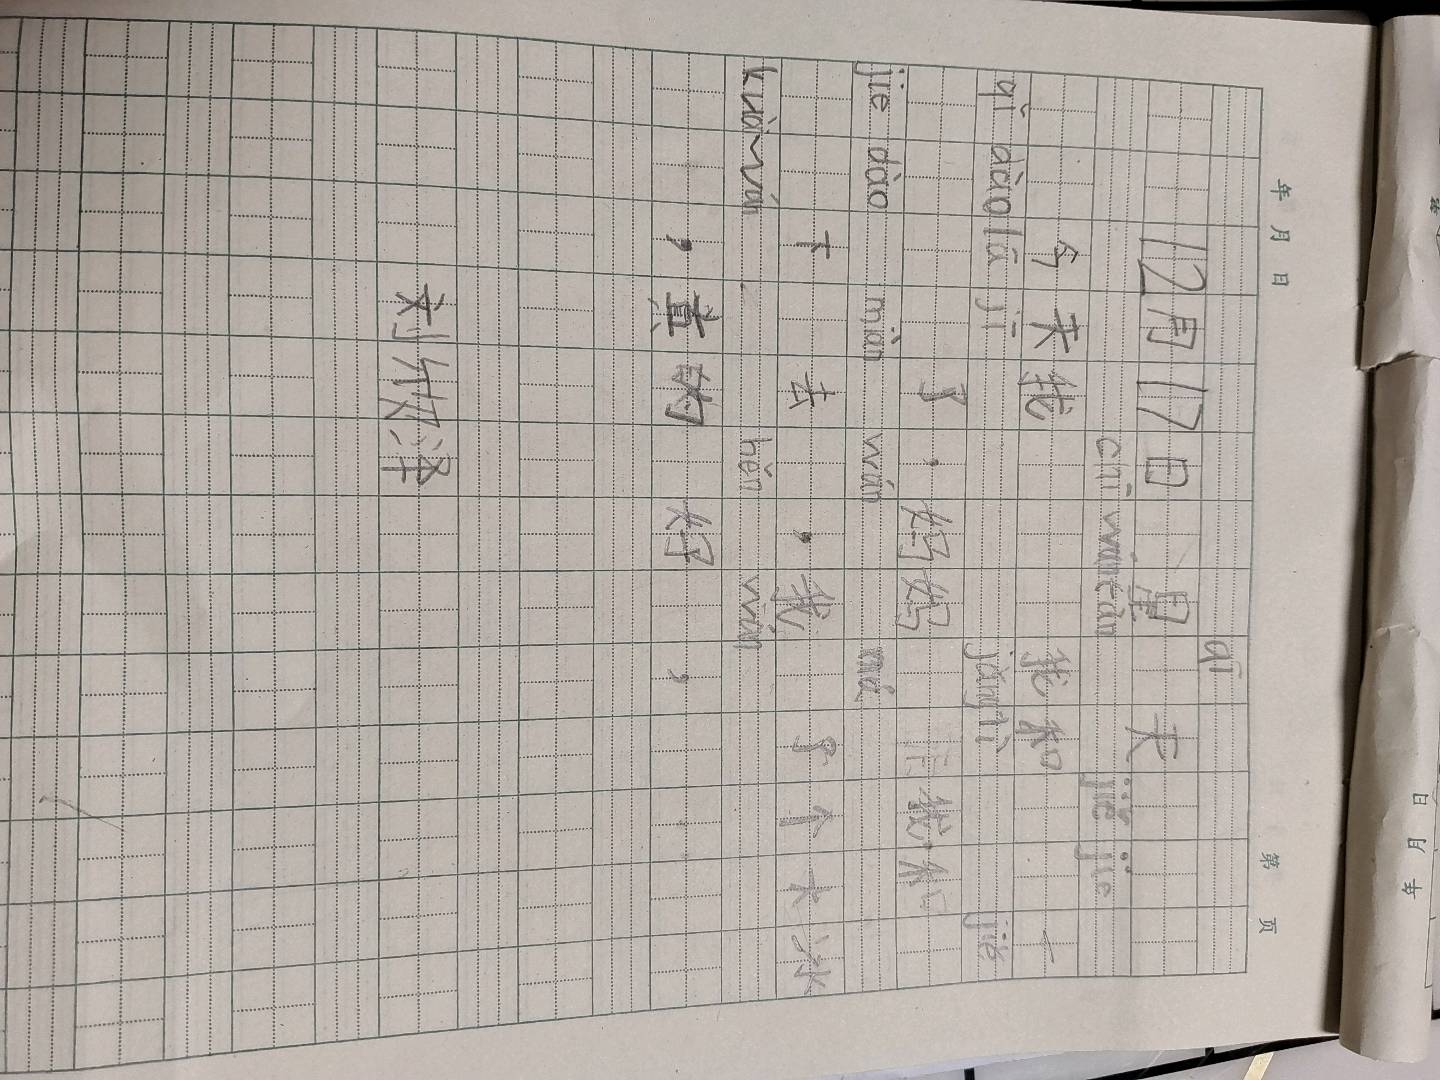 年 月 日 第 页
qī
12月17日 星 天
chī wán fàn jiě jie
今天我 我和 一
qǐ dào lā jī
了，妈妈 我和
jiě dào miàn wán
下 去，我 了个大冰
kuài wán hěn wán
，真的 好
年 月 日